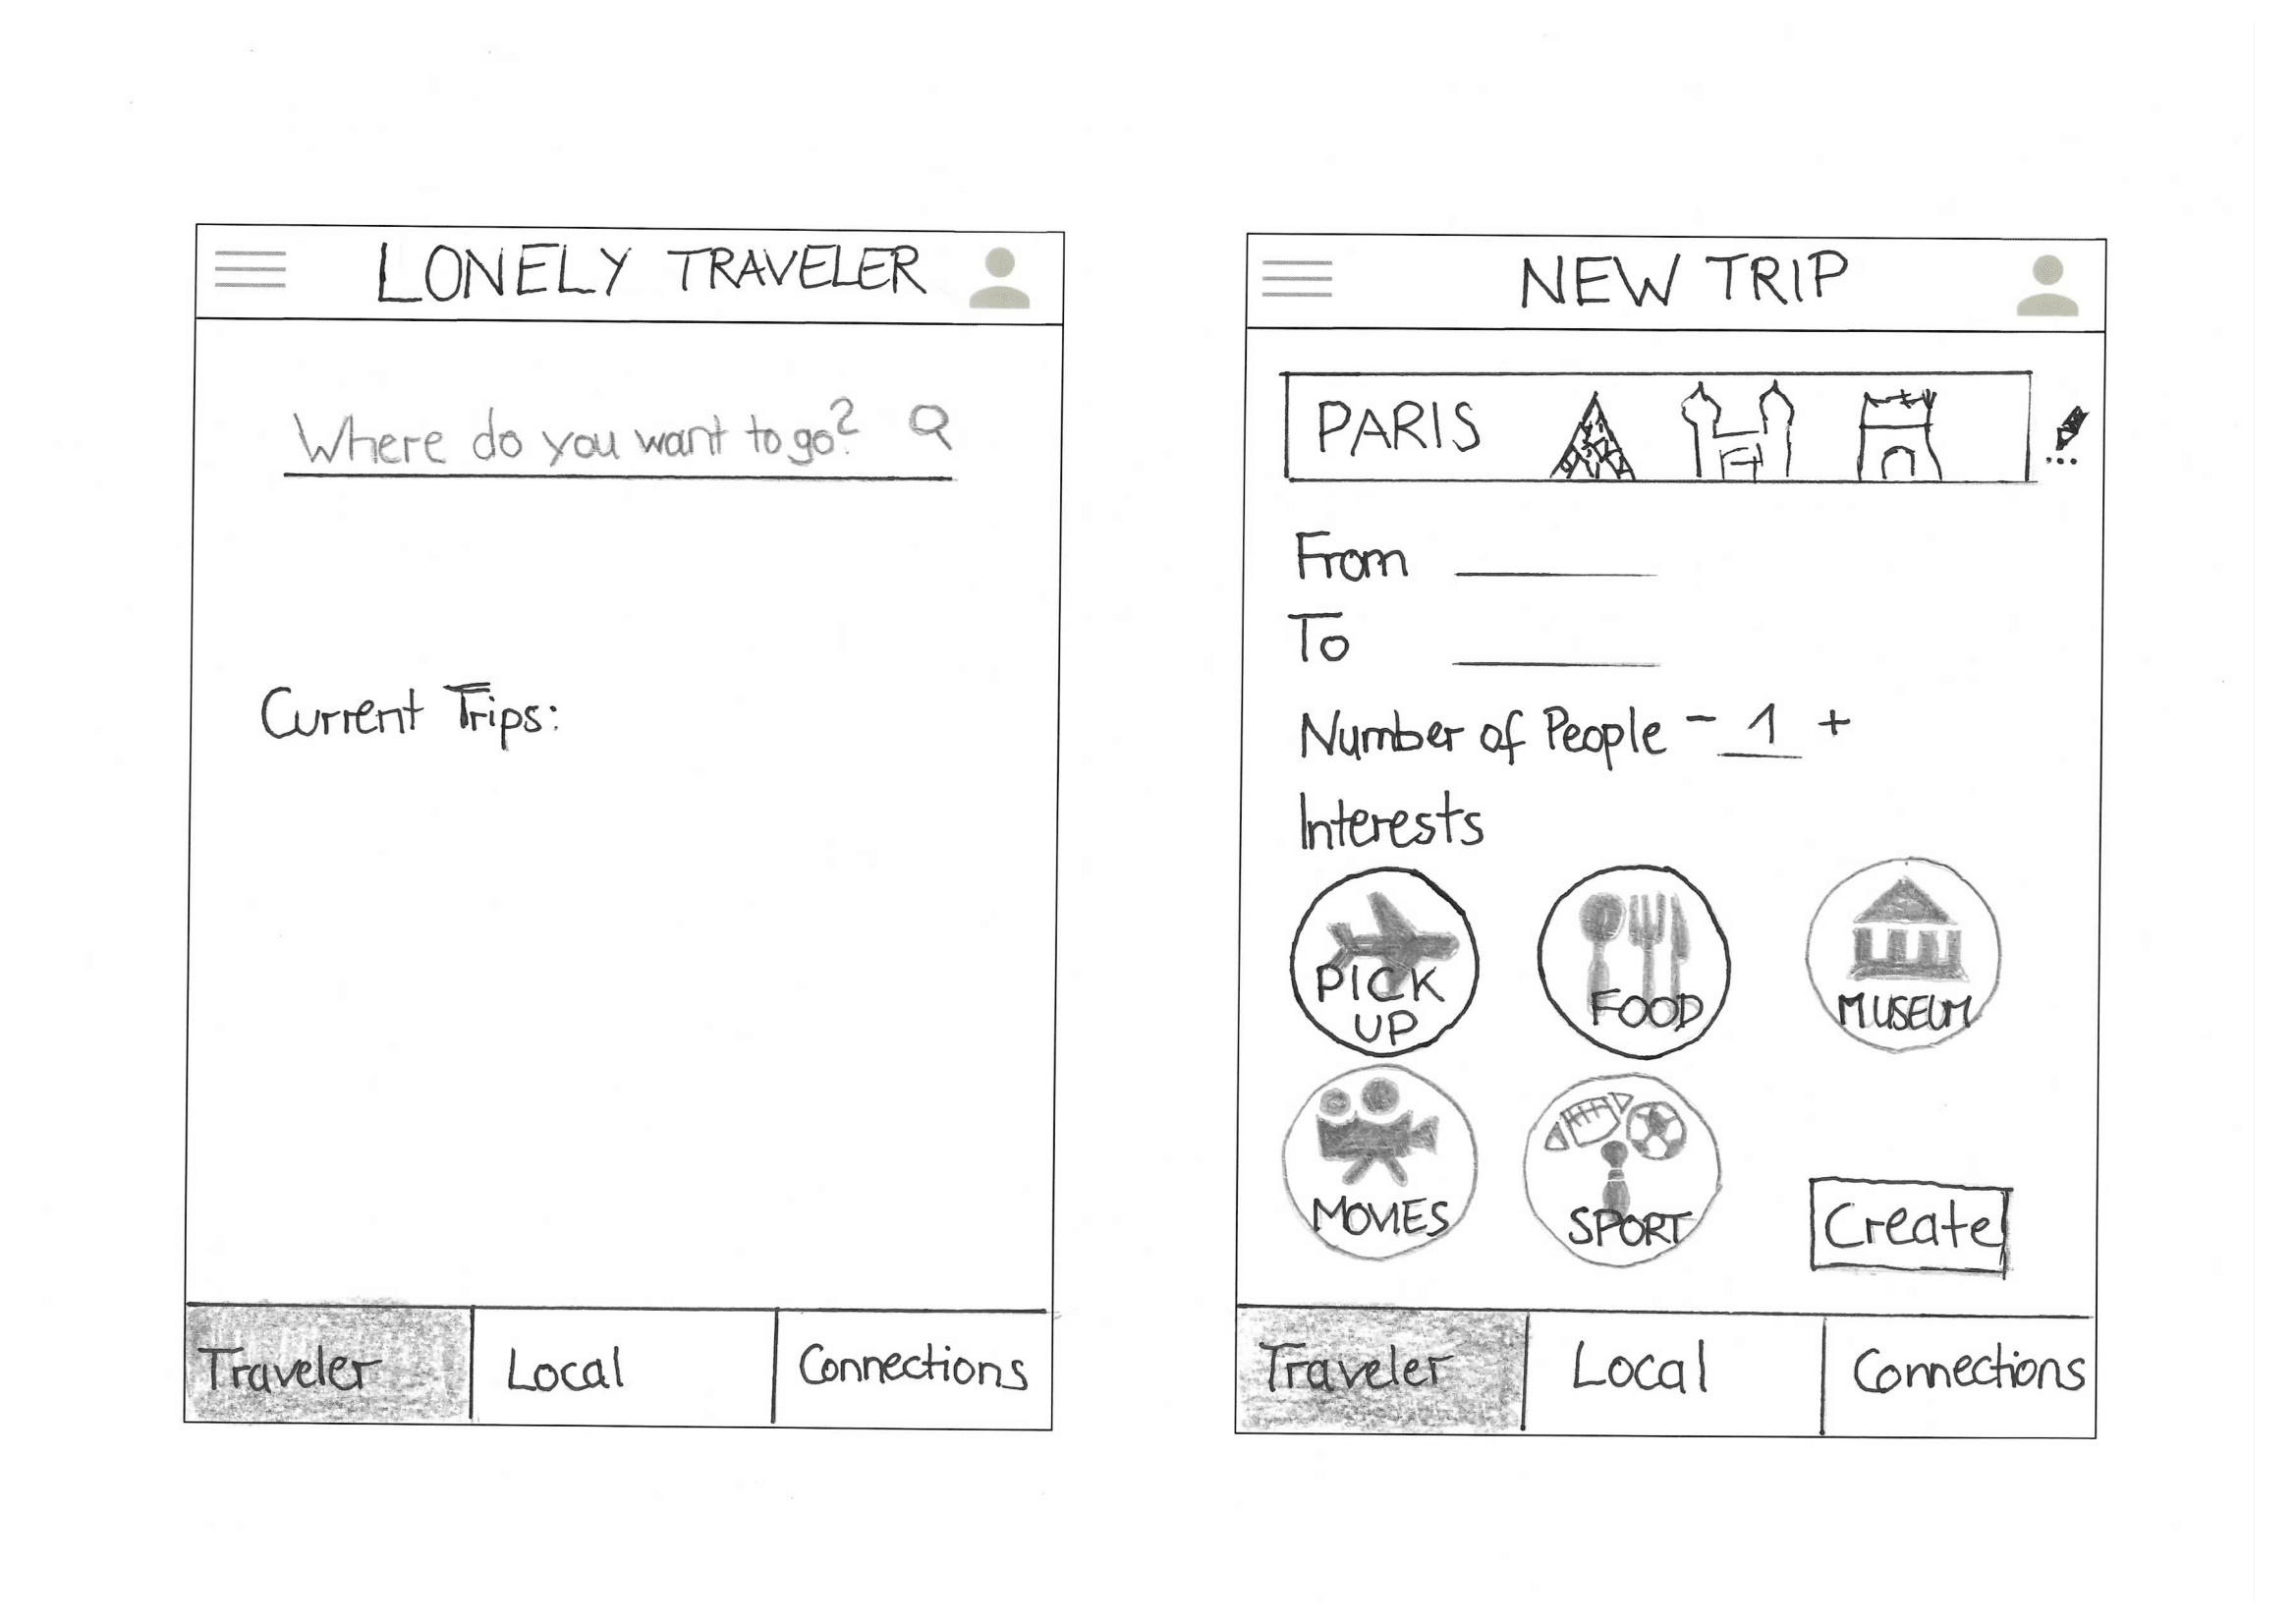 LONELY TRAVELER
Where do you want to go?
Current Trips:
Traveler Local Connections
NEW TRIP
PARIS
From
To
Number of People - 1 +
Interests
PICK UP
FOOD
MUSEUM
MOVIES
SPORT
Create
Traveler Local Connections